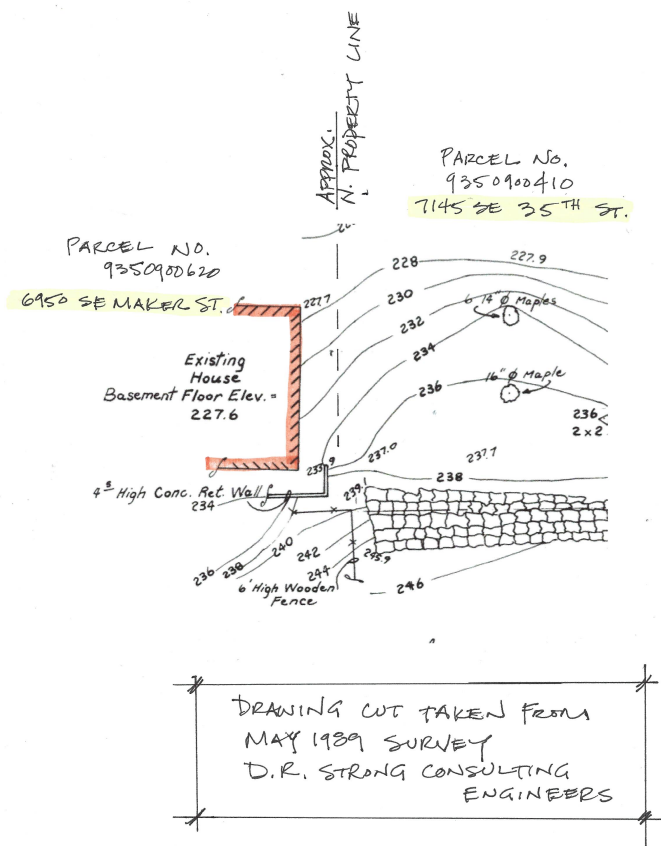 APPROX.
N. PROPERTY LINE
PARCEL NO.
9350900410
7145 SE 35TH ST.
PARCEL NO.
9350900620
6950 SE MAKER ST.
227.7
228
227.9
230
232
234
6" 14" Ø Maples
Existing
House
Basement Floor Elev. =
227.6
236
16" Ø Maple
236
2x2
237.0
237.7
238
239.1
4.5 High Conc. Ret. Wall
234
236
238
240
242
244
245.9
246
6' High Wooden
Fence
DRAWING CUT TAKEN FROM
MAY 1989 SURVEY
D.R. STRONG CONSULTING
ENGINEERS